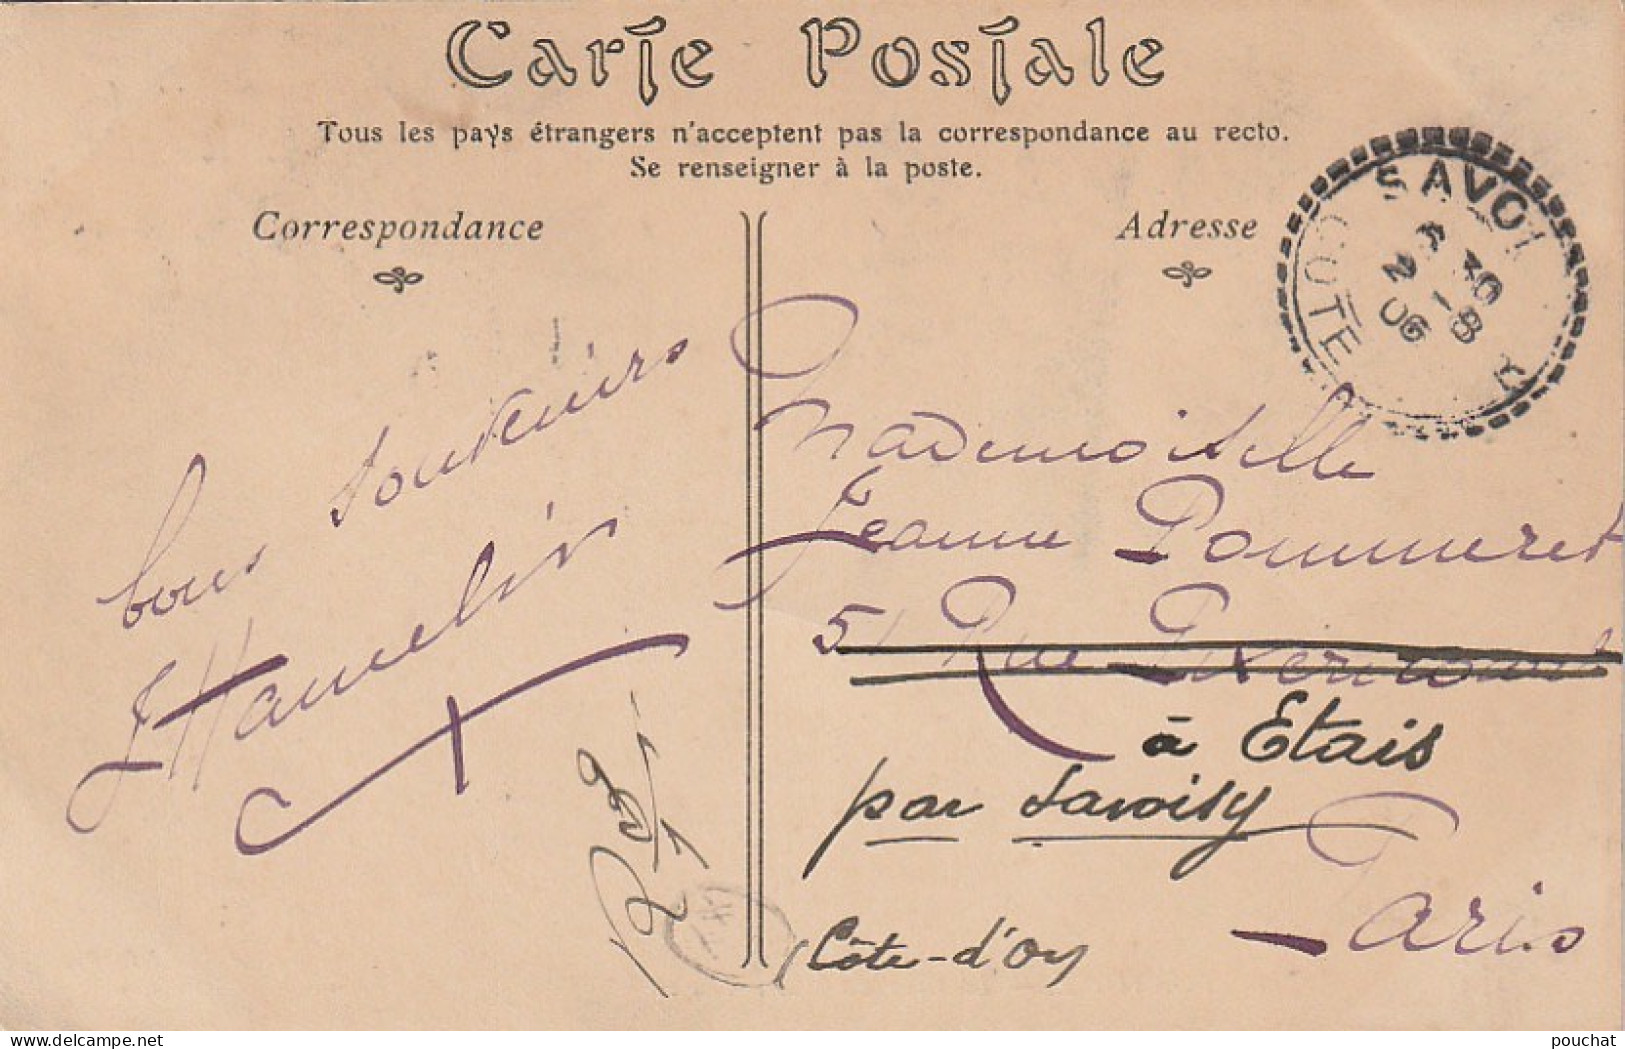 Carte Postale
Tous les pays étrangers n'acceptent pas la correspondance au recto.
Se renseigner à la poste.
Correspondance
bons souvenirs
J Hamelin
Adresse
SAVOI
CÔTE
20
2 - 8
06
Mademoiselle
Jeanne Pommeret
51 Rue Pixéricourt
à Etais
par Savoisy
Paris
(Côte-d'Or
pouchat